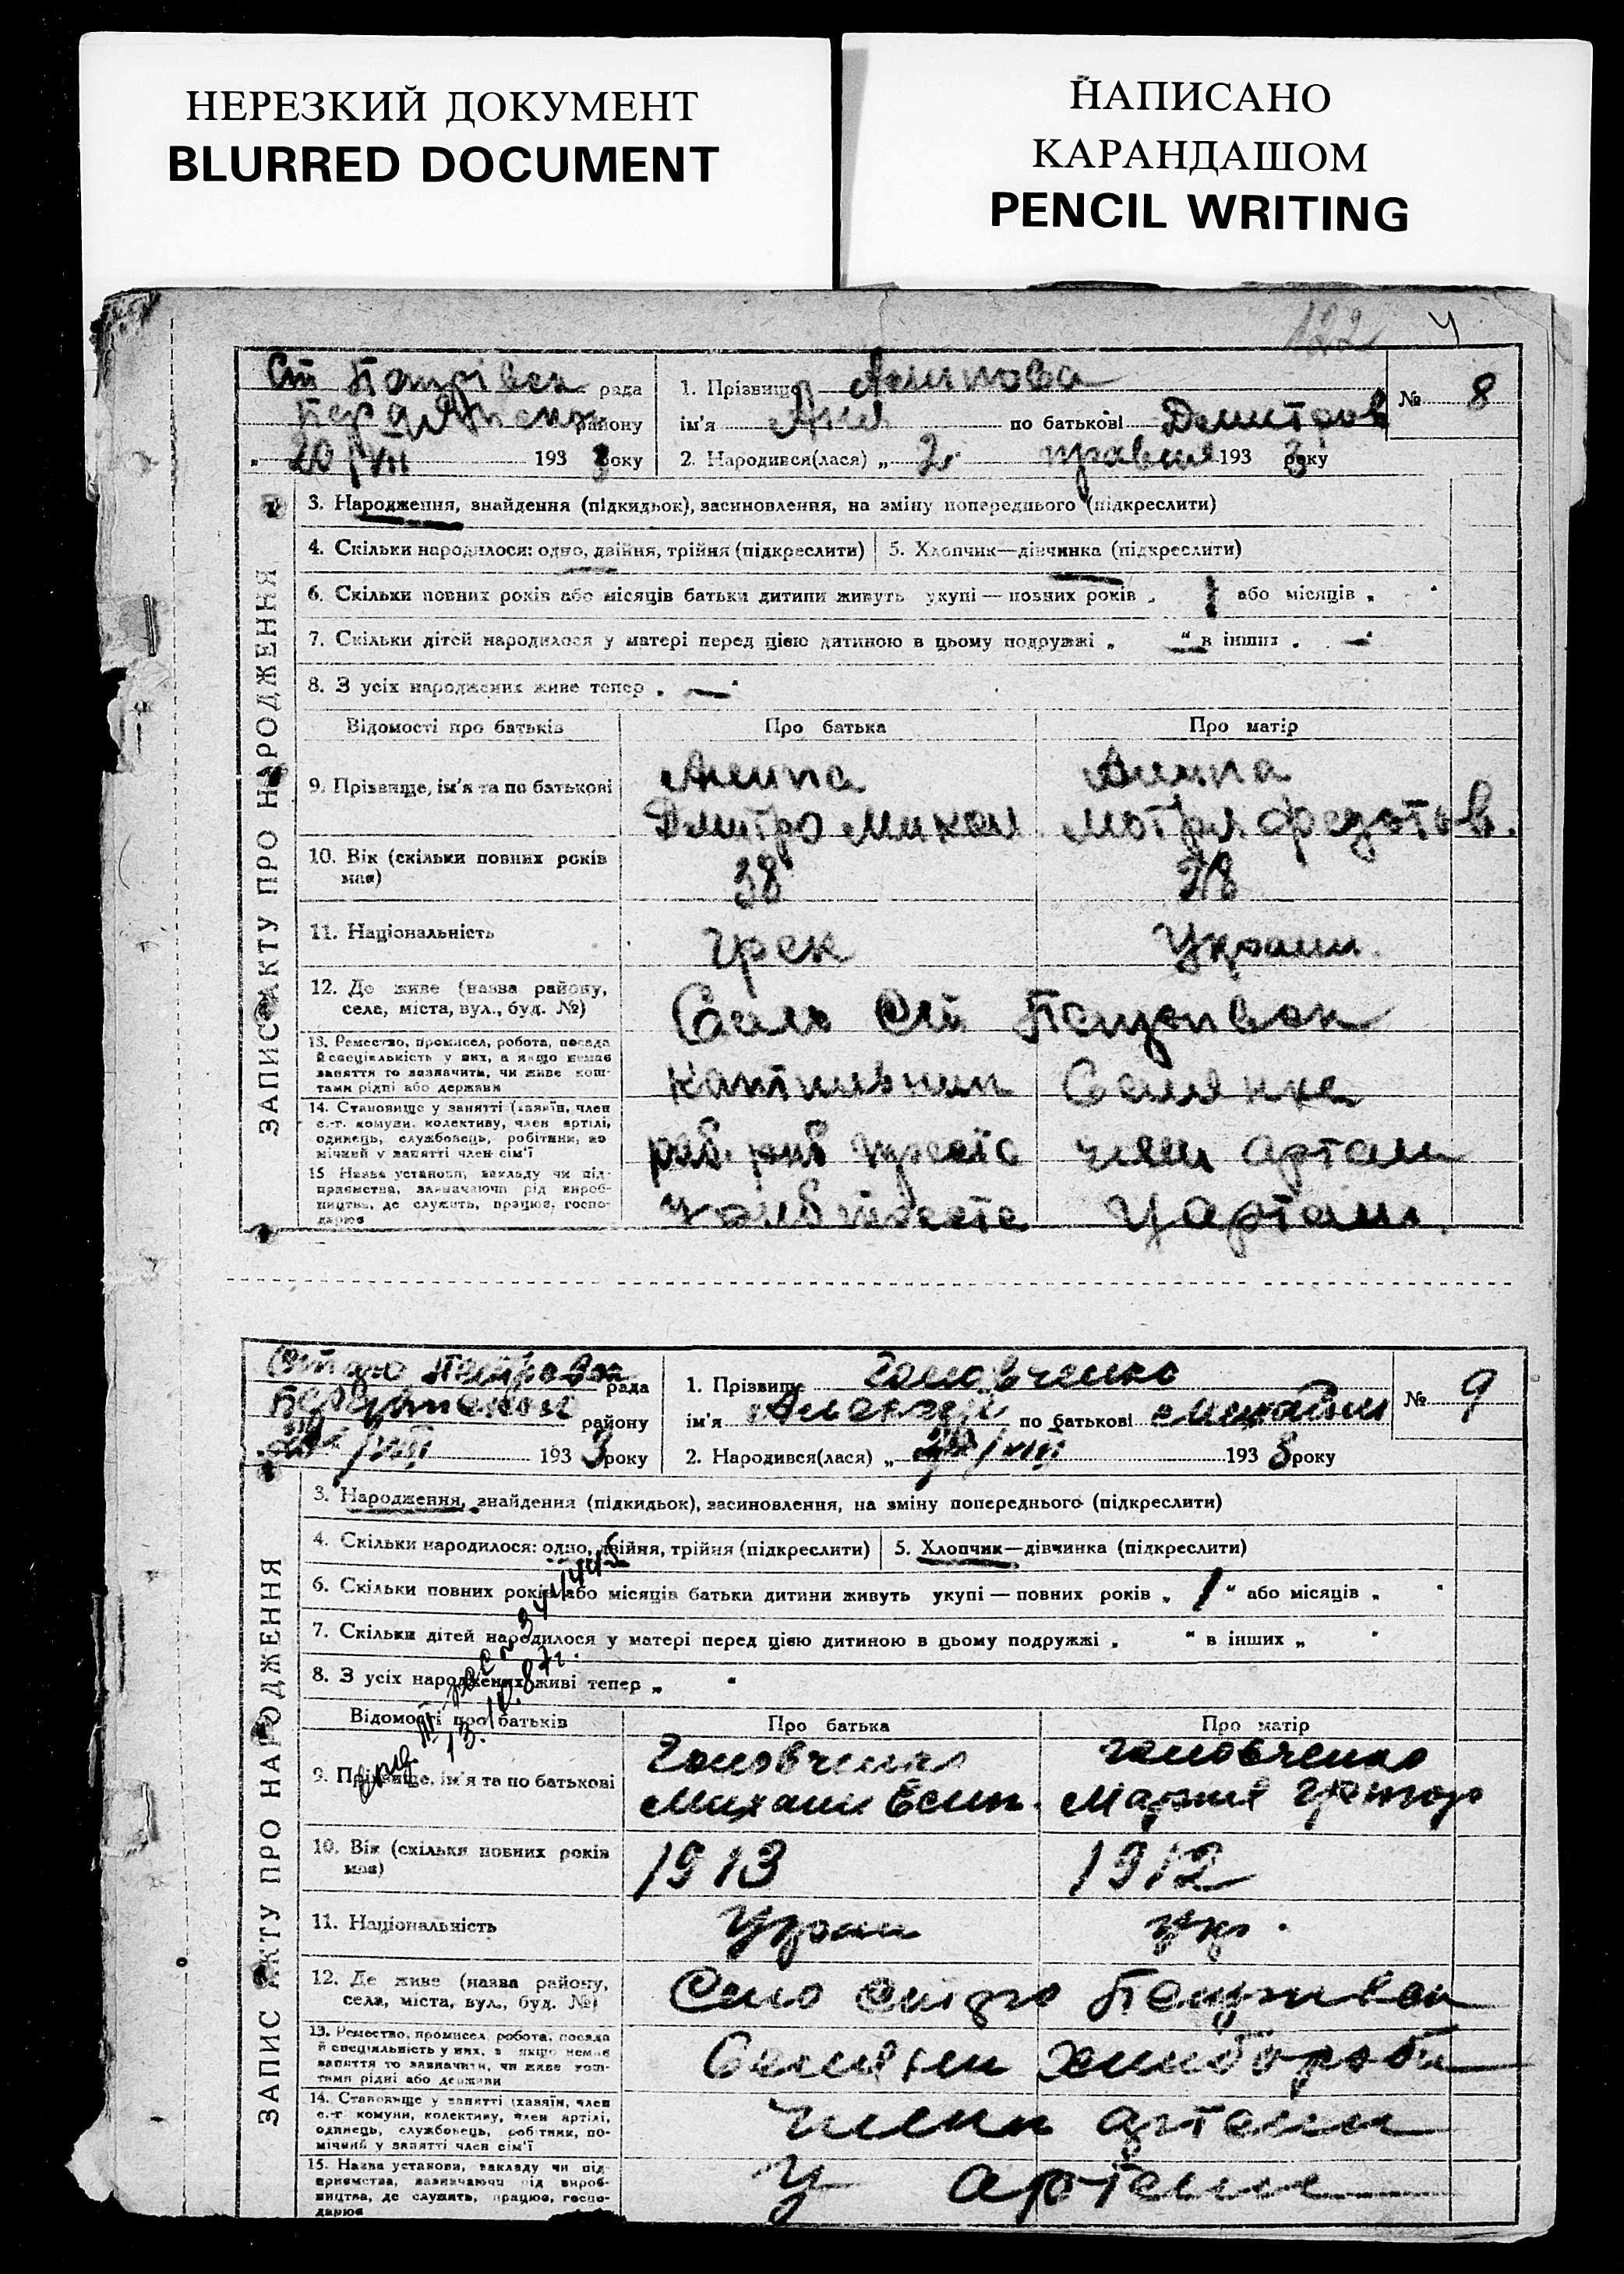 НЕРЕЗКИЙ ДОКУМЕНТ
BLURRED DOCUMENT
НАПИСАНО
КАРАНДАШОМ
PENCIL WRITING
122 4
ЗАПИС АКТУ ПРО НАРОДЖЕННЯ
Ст Петрівськ рада
району
20/VIII 1933 року
1. Прізвище
ім'я по батькові Дмитров
2. Народився(лася) „ 2 травня 1933 року
№ 8
3. Народження, знайдення (підкидьок), засиновлення, на зміну попереднього (підкреслити)
4. Скільки народилося: одно, двійня, трійня (підкреслити) 5. Хлопчик—дівчинка (підкреслити)
6. Скільки повних років або місяців батьки дитини живуть укупі — повних років „ або місяців „
7. Скільки дітей народилося у матері перед цією дитиною в цьому подружжі „ — “ в інших „ —
8. З усіх народжених живе тепер „ —
Відомості про батьків Про батька Про матір
9. Прізвище, ім'я та по батькові
Дмитро Микол. Мотря Федотов.
10. Вік (скільки повних років має) 38 28
11. Національність грек Україн.
12. Де живе (назва району, села, міста, вул., буд. №) Село Ст Петрівськ
13. Ремество, промисел, робота, посада
й спеціяльність у них, а якщо немає
заняття то зазначити, чи живе кош-
тами рідні або держави
Селянка
14. Становище у занятті (хазяїн, член
с.-г. комуни, колективу, член артілі,
одинець, службовець, робітник, по-
мічний у занятті член сім'ї
член артели
15 Назва установи, закладу чи під-
приємства, зазначаючи рід вироб-
ництва, де служить, працює, госпо-
дарює
У артели
ЗАПИС АКТУ ПРО НАРОДЖЕННЯ
Старо Петровск рада
району
VIII 1933 року
1. Прізвище Головченко
ім'я Алексей по батькові Михайлов
2. Народився(лася) „ /VIII 193 року
№ 9
3. Народження, знайдення (підкидьок), засиновлення, на зміну попереднього (підкреслити)
4. Скільки народилося: одно, двійня, трійня (підкреслити) 5. Хлопчик—дівчинка (підкреслити)
6. Скільки повних років або місяців батьки дитини живуть укупі — повних років „ 1 “ або місяців „
7. Скільки дітей народилося у матері перед цією дитиною в цьому подружжі „ “ в інших „
8. З усіх народжених живі тепер „
13.10.87г.
Відомості про батьків Про батька Про матір
9. Прізвище, ім'я та по батькові
Головченко Головченко
Михаил Есип. Мария Григор
10. Вік (скільки повних років має) 1913 1912
11. Національність Украин укр.
12. Де живе (назва району, села, міста, вул., буд. №) Село Старо Петривск
13. Ремество, промисел, робота, посада
й спеціяльність у них, а якщо немає
заняття то зазначити, чи живе кош-
тами рідні або держави
Селяни хлибороби
14. Становище у занятті (хазяїн, член
с.-г. комуни, колективу, член артілі,
одинець, службовець, робітник, по-
мічний у занятті член сім'ї
члени артели
15. Назва установи, закладу чи під-
приємства, зазначаючи рід вироб-
ництва, де служить, працює, госпо-
дарює
У артели